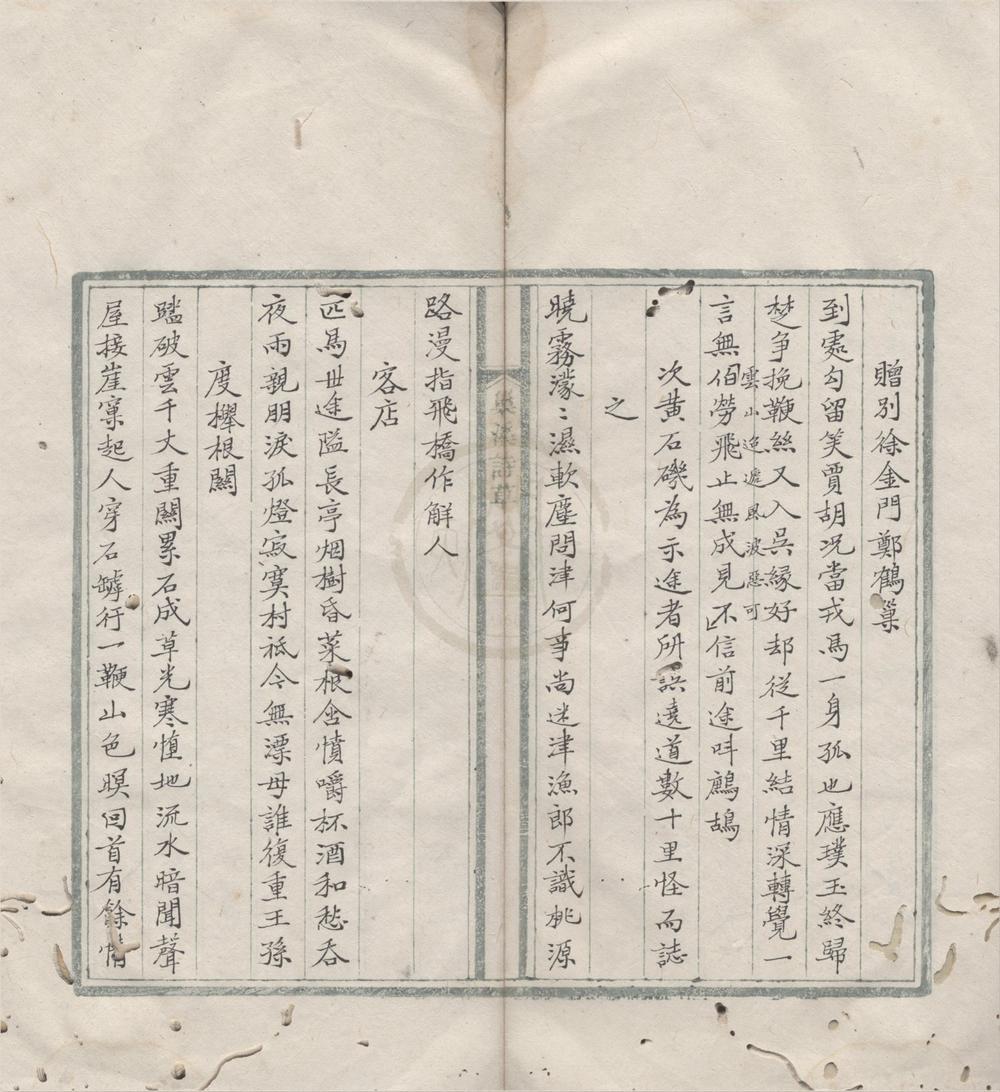 贈別徐金門鄭鶴巢
到處勾留笑賈胡况當戎馬一身孤也應璞玉終歸
楚争挽鞭絲又入吳緣好却從千里結情深轉覺一
雲山迢遞風波惡可
言無伯勞飛止無成見不信前途呌鷓鴣
次黃石磯為示途者所誤遶道數十里怪而誌
之
曉霧濛〻濕軟塵問津何事尚迷津漁郎不識桃源
路漫指飛橋作解人
客店
匹馬世途隘長亭烟樹昏菜根含憤嚼杯酒和愁吞
夜雨親朋淚孤燈寂寞村祗今無漂母誰復重王孫
度櫸根關
踏破雲千丈重關累石成草光寒墮地流水暗聞聲
屋接崖窠起人穿石罅行一鞭山色暝回首有餘情